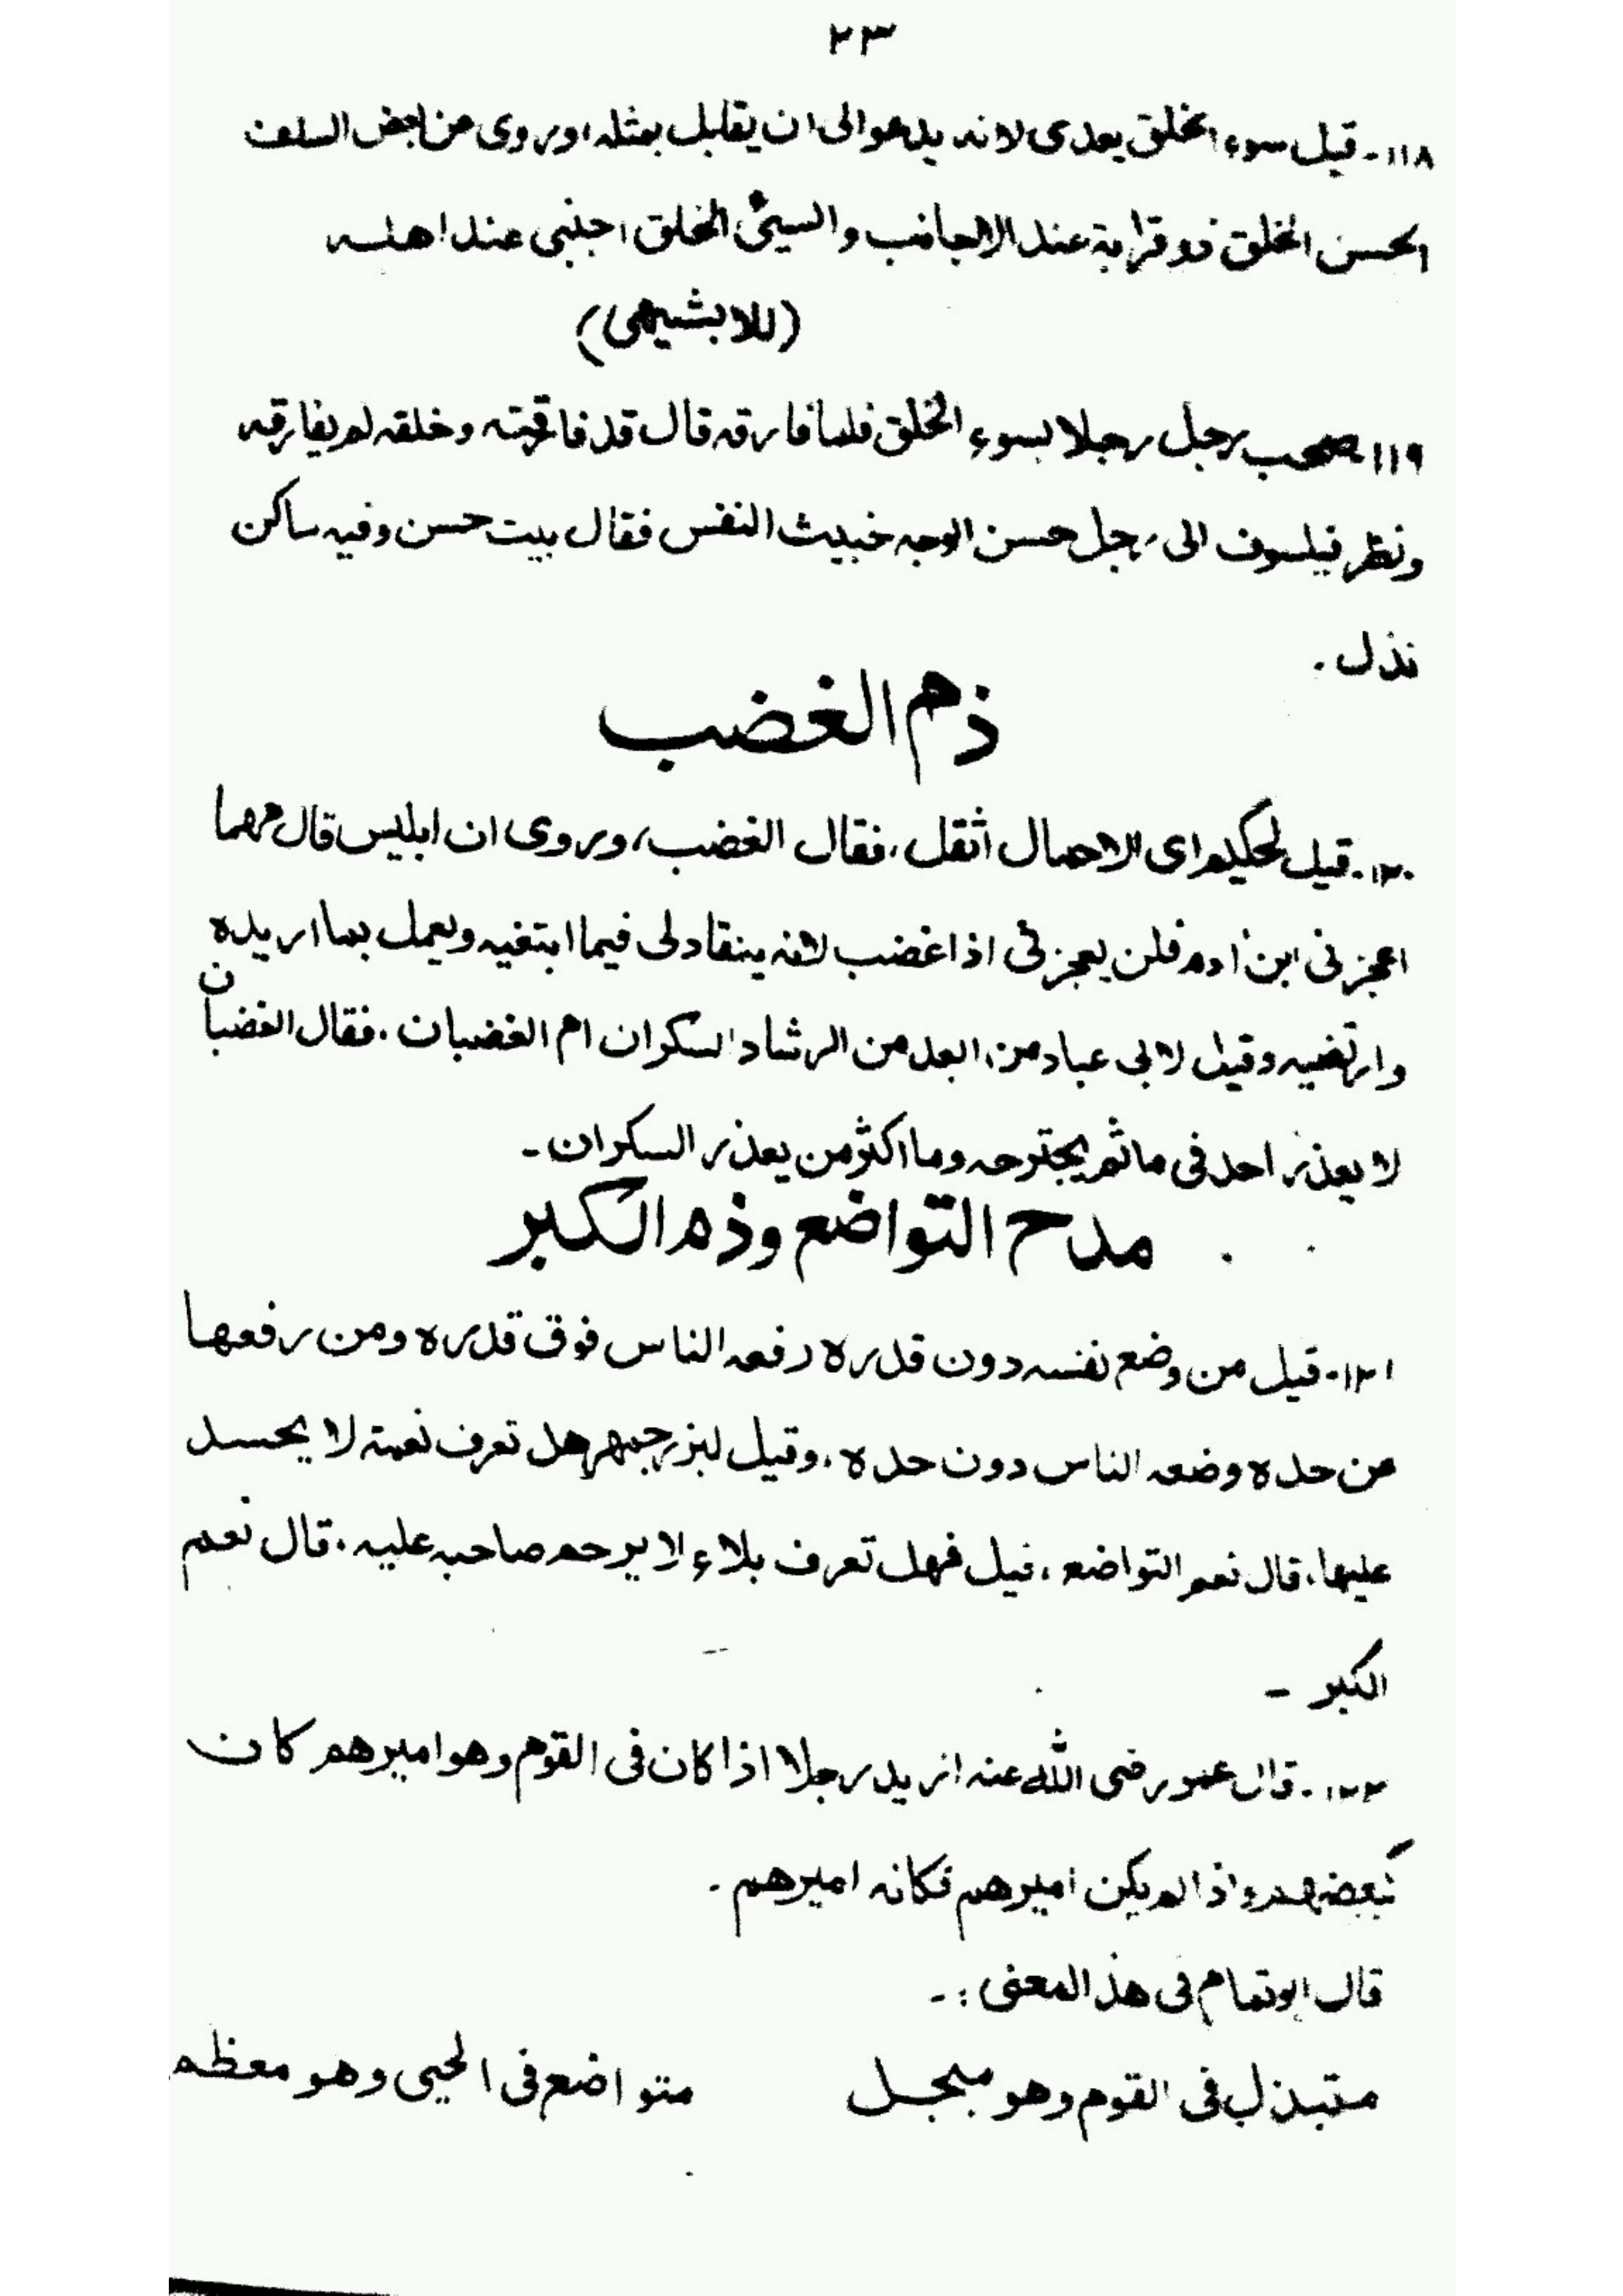 ٢٣
١١٨- قيل سوء الخلق يعدى لانه يدعو الى ان يقابل بمثله، وروى عن بعض السلف
الحسن الخلق ذو قرابة عند الاجانب والسيئ الخلق اجنبى عند اهله
(للابشيهى)
١١٩- صحب رجل رجلا بسوء الخلق فلما فارقه قال قد فارقته وخلقه لم يفارقه
ونظر فيلسوف الى رجل حسن الوجه خبيث النفس فقال بيت حسن وفيه ساكن
نذل.
ذم الغضب
١٢٠- قيل لحكيم اى الاحمال اثقل، فقال الغضب، وروى ان ابليس قال مهما
اعجزنى ابن ادم فلن يعجزنى اذا غضب لانه ينقاد لى فيما ابتغيه ويعمل بما اريده
وارتضيه وقيل لابى عباد من ابعد من الرشاد السكران ام الغضبان. فقال الغضبان
لا يعذر احد فى ماثم يجترحه وما اكثر من يعذر السكران-
مدح التواضع وذم الكبر
١٢١- قيل من وضع نفسه دون قدره رفعه الناس فوق قدره ومن رفعها
عن حده وضعه الناس دون حده، وقيل لبزرجمهر هل تعرف نعمة لا يحسد
عليها، قال نعم التواضع، قيل فهل تعرف بلاء لا يرحم صاحبه عليه، قال نعم
الكبر -
١٢٢- قال عمر رضى الله عنه اريد رجلا اذا كان فى القوم وهو اميرهم كان
كبعضهم واذا لم يكن اميرهم فكانه اميرهم.
قال ابو تمام فى هذا المعنى :-
متبذل فى القوم وهو مبجل متواضع فى الحيى وهو معظم